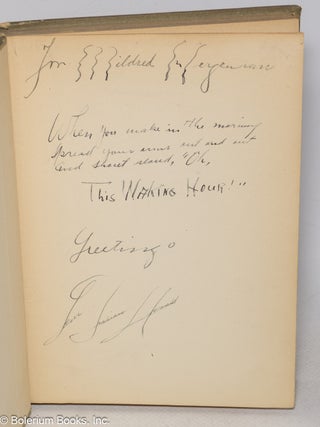 For Mildred
When you wake in the morning
spread your arms out and out
and shout aloud, "Oh,
This Waking Hour!"
Greetings
© Bolerium Books, Inc.